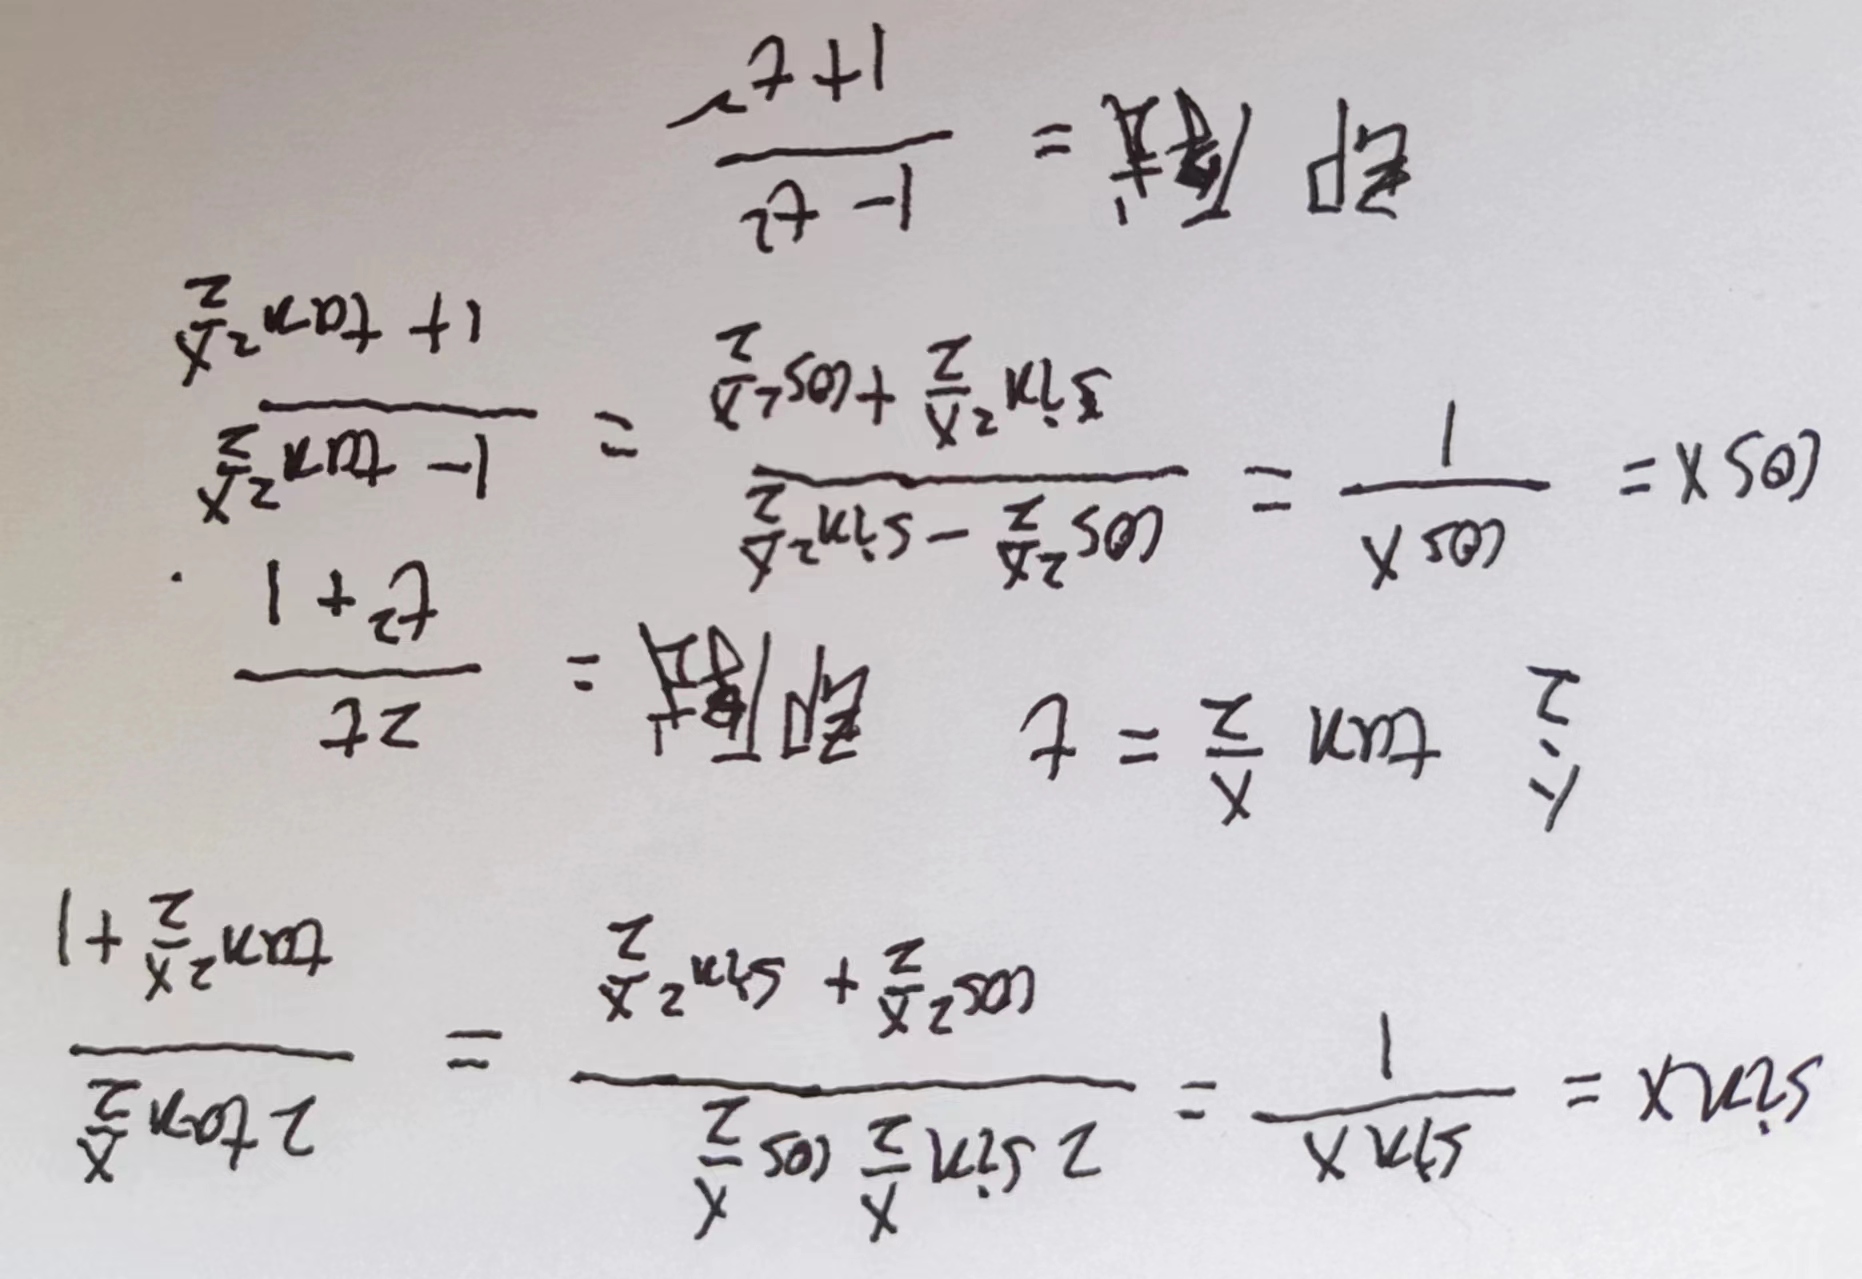 sinx = \frac{sinx}{1} = \frac{2 sin\frac{x}{2} cos\frac{x}{2}}{cos^2\frac{x}{2} + sin^2\frac{x}{2}} = \frac{2tan\frac{x}{2}}{tan^2\frac{x}{2} + 1}
令 tan\frac{x}{2} = t 即原式 = \frac{2t}{t^2 + 1}.
cosx = \frac{cosx}{1} = \frac{cos^2\frac{x}{2} - sin^2\frac{x}{2}}{sin^2\frac{x}{2} + cos^2\frac{x}{2}} = \frac{1 - tan^2\frac{x}{2}}{1 + tan^2\frac{x}{2}}
即 原式 = \frac{1 - t^2}{1 + t^2}